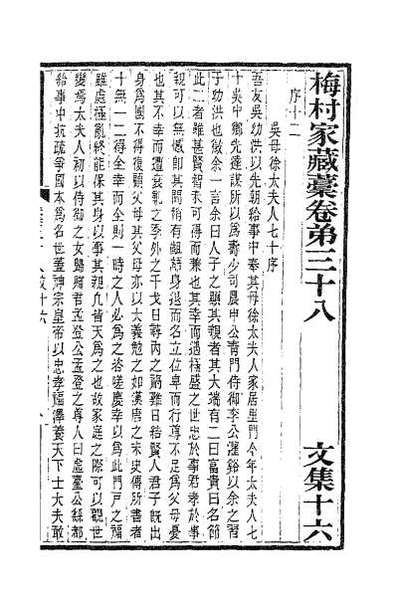 梅村家藏藁卷弟三十八　文集十六
序十二
吳母徐太夫人七十序
吾友吳幼洪以先朝給事中奉其母徐太夫人家居里門今年太夫人七
十吳中鄉先達謀所以為壽少司農申公青門侍御李公灌谿以余之習
于幼洪也徵余一言余曰人子之顯其親者其大端有二曰富貴曰名節
此二者雖甚賢智未可得而兼也其幸而遇極盛之世忠於事君孝於事
親可以無憾即其間稍有齟齬身退而名立位卑而行尊不足為父母憂
也其不幸而遭衰亂之季外之干戈日尋內之禍難日結賢人君子既出
身為國不得復顧父母其父母亦以大義勉之如漢唐之末史傳所書者
十無一二得全幸而全則一時之人必為之咨嗟慶幸以為此門戶之福
雖處極亂終能保其身以事其親凡皆天為之也故家庭之際可以觀世
變焉太夫人初以侍御之女歸贈君孟登公孟登之尊人曰虛臺公繇都
給事中抗疏爭國本為名世蓋神宗皇帝以忠孝福澤養天下士大夫敢